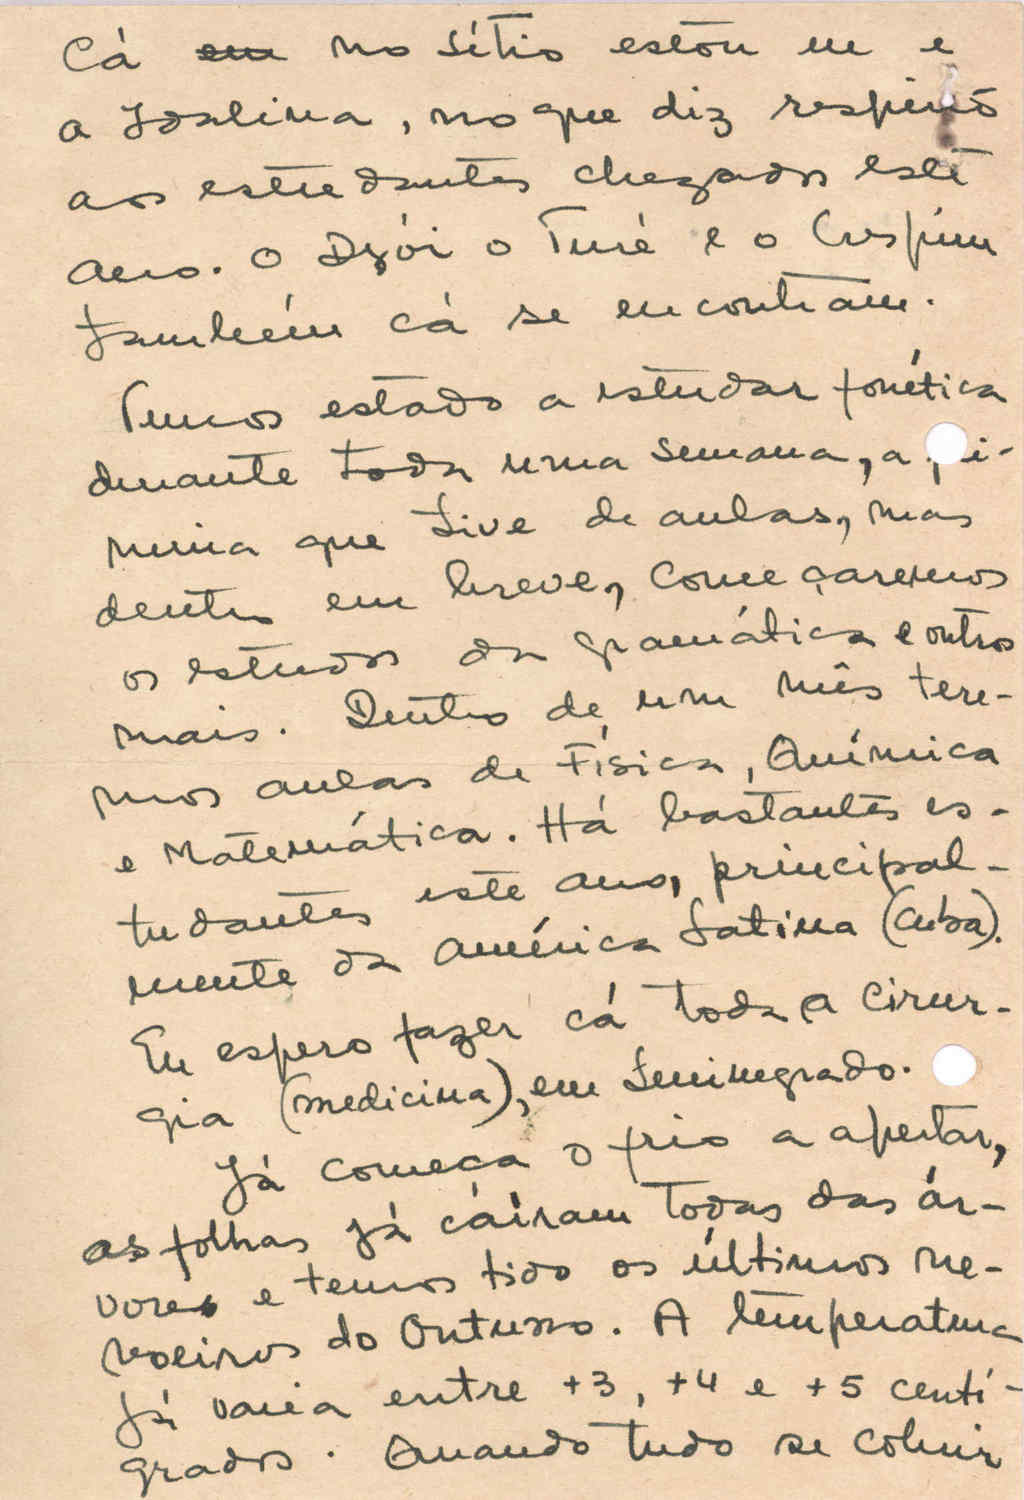 Cá em no sítio estou eu e
a Idalina, no que diz respeito
aos estudantes chegados este
ano. O Dzói o Turé e o Crispim
também cá se encontram.
Temos estado a estudar fonética
durante toda uma semana, a pri-
meira que tive de aulas, mas
dentro em breve, começaremos
os estudos da gramática e outros
mais. Dentro de um mês tere-
mos aulas de Física, Química
e Matemática. Há bastantes es-
tudantes este ano, principal-
mente da América Latina (Cuba).
Eu espero fazer cá toda a cirur-
gia (medicina), em Leninegrado.
Já começa o frio a apertar,
as folhas já caíram todas das ár-
vores e temos tido os últimos ne-
voeiros do Outono. A temperatura
já varia entre +3, +4 e +5 centí-
grados. Quando tudo se cobrir